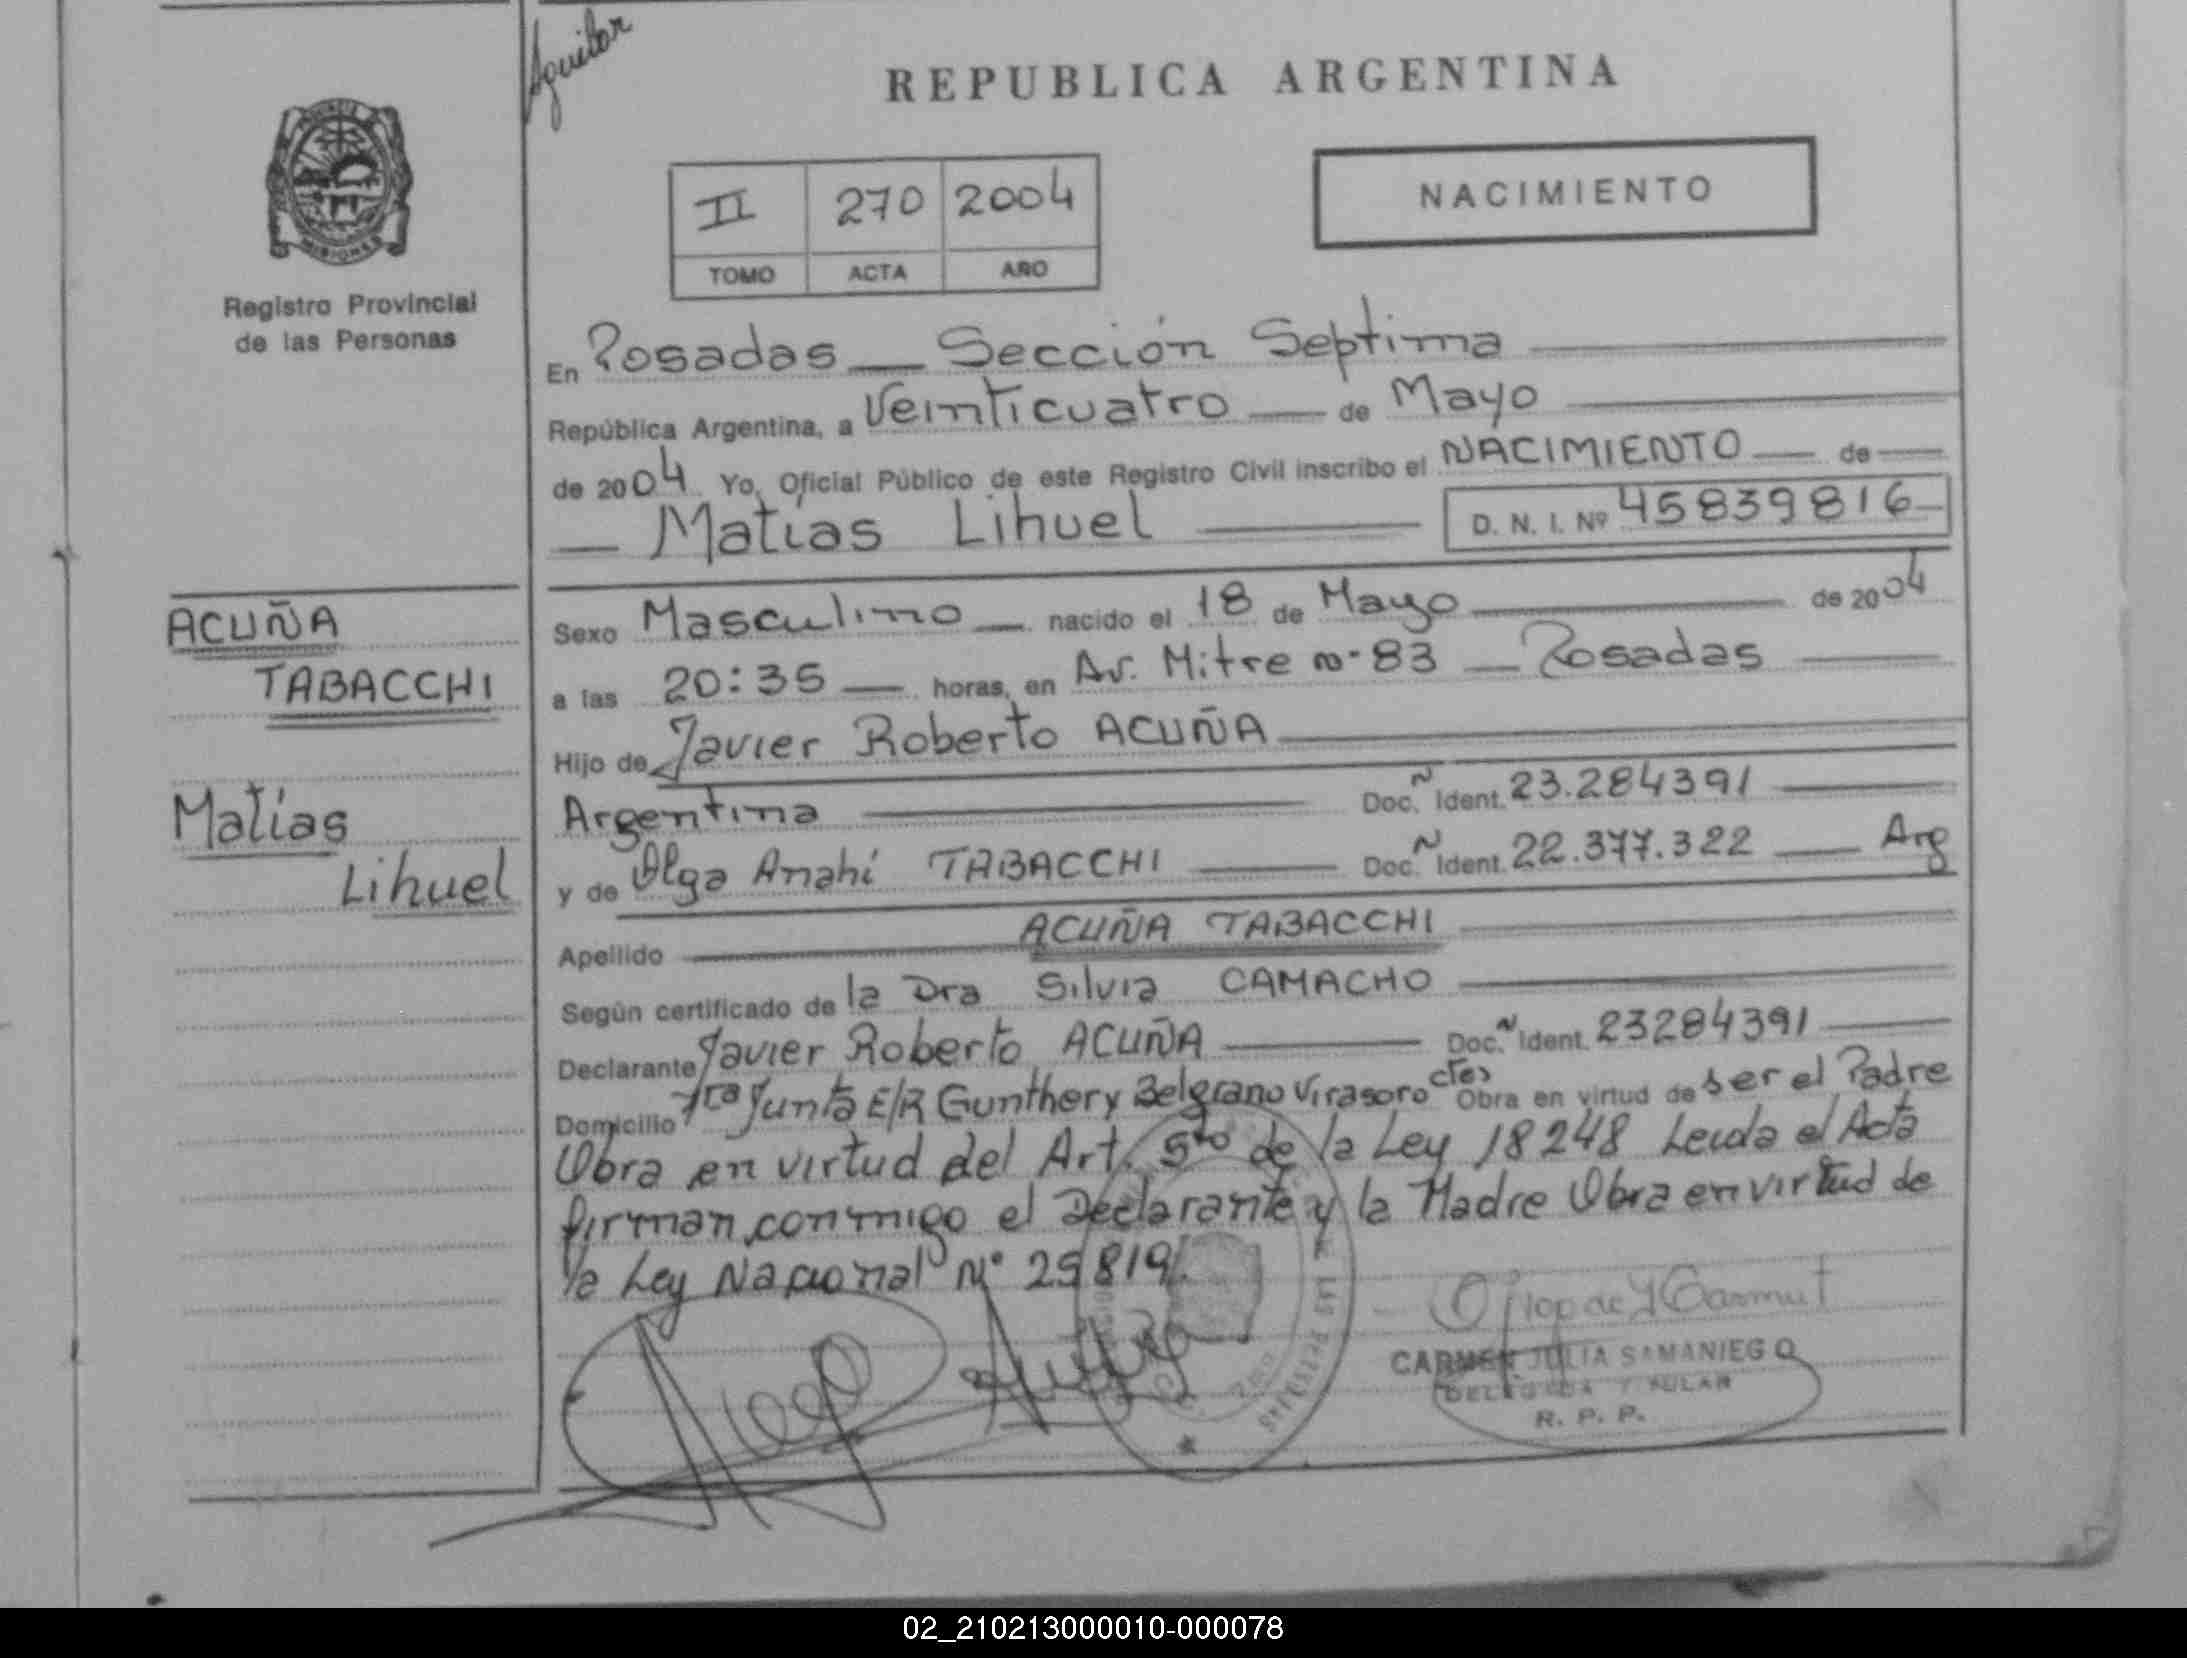 Aguilar
REPUBLICA ARGENTINA
PROVINCIA
MISIONES
Registro Provincial
de las Personas
II 270 2004
TOMO ACTA AÑO
NACIMIENTO
En Posadas — Sección Septima
República Argentina, a Veinticuatro — de Mayo
de 2004 Yo, Oficial Público de este Registro Civil inscribo el NACIMIENTO — de
— Matías Lihuel — D. N. I. Nº 45839816
ACUÑA
TABACCHI
Matías
Lihuel
Sexo Masculino — nacido el 18 de Mayo — de 2004
a las 20:35 — horas, en Av. Mitre nº 83 — Posadas
Hijo de Javier Roberto ACUÑA
Argentina — Doc. N Ident. 23.284391
y de Olga Anahí TABACCHI — Doc. N Ident. 22.377.322 — Arg
Apellido — ACUÑA TABACCHI
Según certificado de la Dra Silvia CAMACHO
Declarante Javier Roberto ACUÑA — Doc. N Ident. 23284391
Domicilio 1ra Junta E/R Gunther y Belgrano Virasoro ctes Obra en virtud de ser el Padre
Obra en virtud del Art. 5to de la Ley 18248 Leida el Acta
firman conmigo el Declarante y la Madre Obra en virtud de
la Ley Nacional Nº 25819.
CARMEN JULIA SAMANIEGO
DELEGADA TITULAR
R. P. P.
02_210213000010-000078